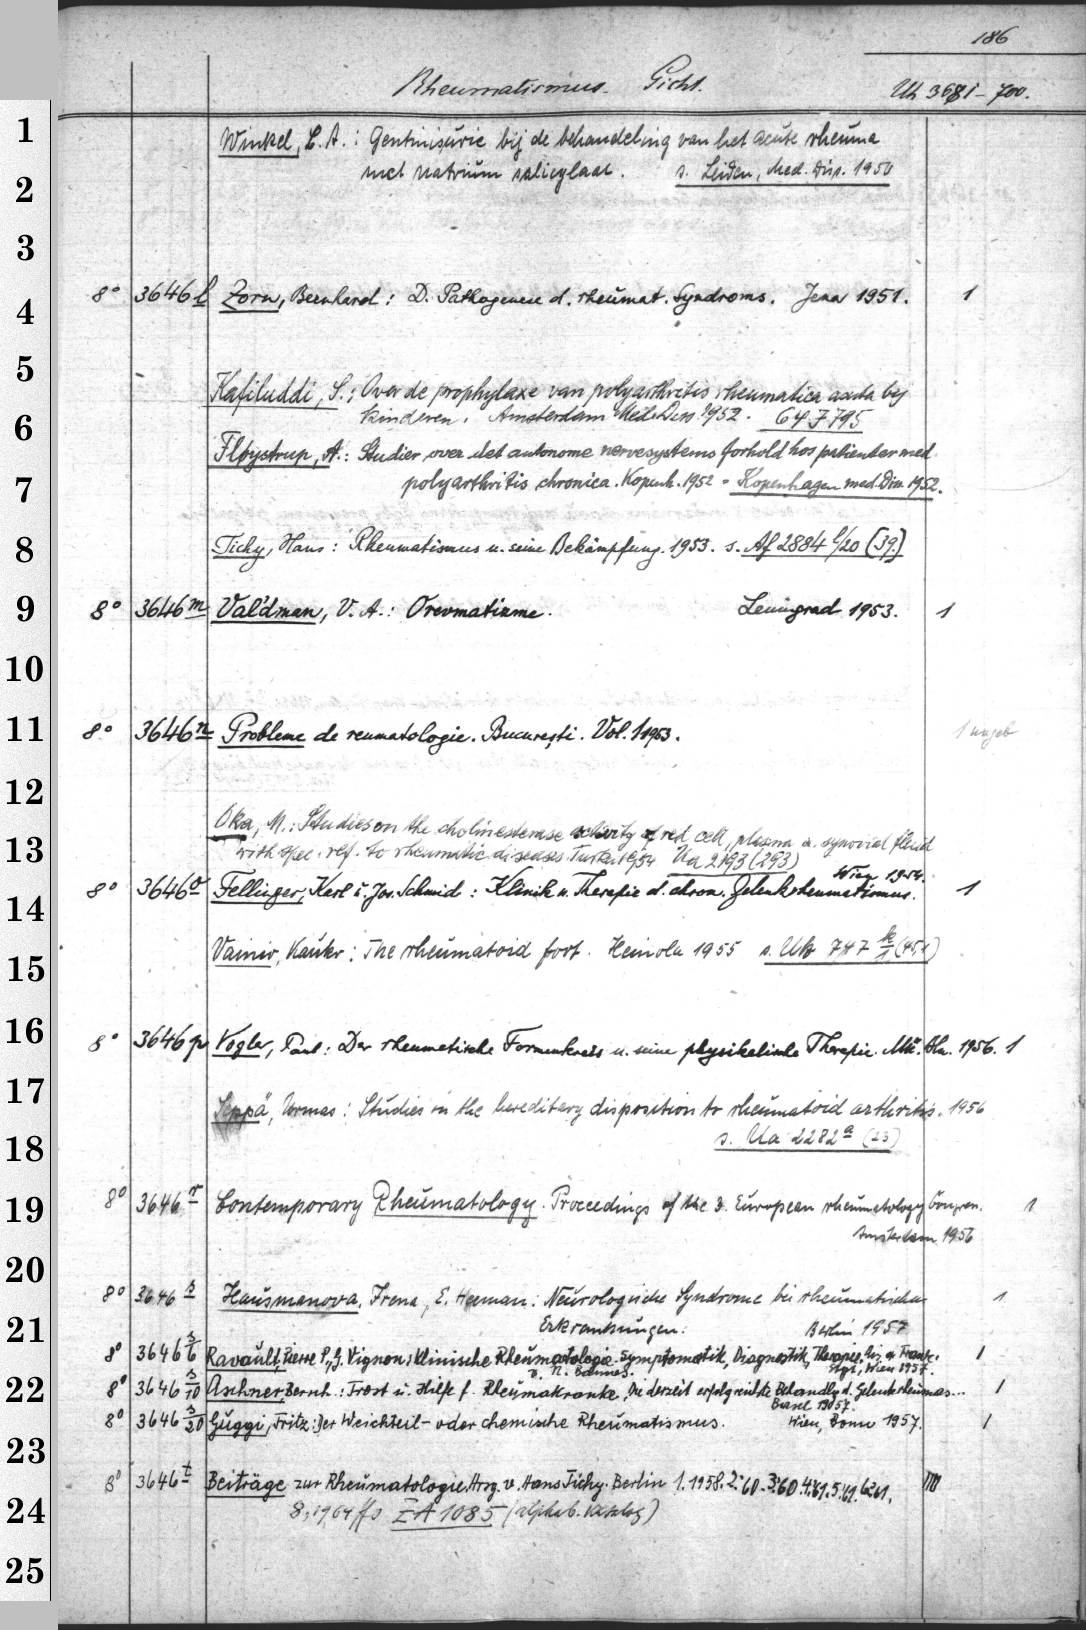 186
Rheumatismus. Gicht. Uk 3681–700.
1 Winkel, C. A.: Gentinisurie bij de behandeling van het acute rheuma
2 met natrium salicylaat. s. Leiden, Med. Diss. 1950
3
4 8° 3646 l Zorn, Bernhard: D. Pathogenese d. rheumat. Syndroms. Jena 1951. 1
5
Kafiluddi, S.: Over de prophylaxe van polyarthritis rheumatica acuta bij
6 kinderen. Amsterdam Med. Diss. 1952. 64 J 795
Fløystrup, A.: Studier over det autonome nervesystems forhold hos patienter med
7 polyarthritis chronica. Kopenh. 1952 = Kopenhagen med. Diss. 1952.
8 Tichy, Hans: Rheumatismus u. seine Bekämpfung. 1953. s. Af 2884 l/20 (39)
9 8° 3646 m Val'dman, V. A.: Orevmatizme. Leningrad 1953. 1
10
11 8° 3646 n Probleme de reumatologie. București. Vol. 1 1953. 1 ungeb
12
Oka, M.: Studies on the cholinesterase activity of red cell, plasma a. synovial fluid
13 with spec. ref. to rheumatic diseases. Turku 1954 Ua 2193 (293)
Wien 1954.
14 8° 3646 o Fellinger, Karl u. Jos. Schmid: Klinik u. Therapie d. chron. Gelenkrheumatismus. 1
15 Vainio, Kauko: The rheumatoid foot. Heinola 1955 s. Uk 747 k/1 (45,1)
16 8° 3646 p Vogler, Paul: Der rheumatische Formenkreis u. seine physikalische Therapie. Mü. Bln. 1956. 1
17 Seppä, Uormas: Studies in the hereditary disposition to rheumatoid arthritis. 1956
18 s. Ua 2282 a (23)
19 8° 3646 r Contemporary Rheumatology. Proceedings of the 3. European rheumatology Congress. 1
Amsterdam 1956
20
8° 3646 s Hausmanova, Irena, E. Herman: Neurologische Syndrome bei rheumatischen 1
21 Erkrankungen. Berlin 1957
8° 3646 s/6 Ravault, Pierre P., G. Vignon: Klinische Rheumatologie. Symptomatik, Diagnostik, Therapie. 1
v. N. Böhmes. Stgt., Wien 1957.
22 8° 3646 s/10 Aschner, Bernh.: Trost u. Hilfe f. Rheumakranke, Die derzeit erfolgreichste Behandlg d. Gelenkrheumas... 1
Basel 1957.
8° 3646 s/20 Guggi, Fritz: Der Weichteil- oder chemische Rheumatismus. Wien, Bonn 1957. 1
23
8° 3646 t Beiträge zur Rheumatologie. Hrsg. v. Hans Tichy. Berlin 1. 1958. 2.'60. 3.'60. 4.'61. 5.'61. 6.'61.
24 8, 1964 ffs ZA 1085 (alphab. Katalog)
25